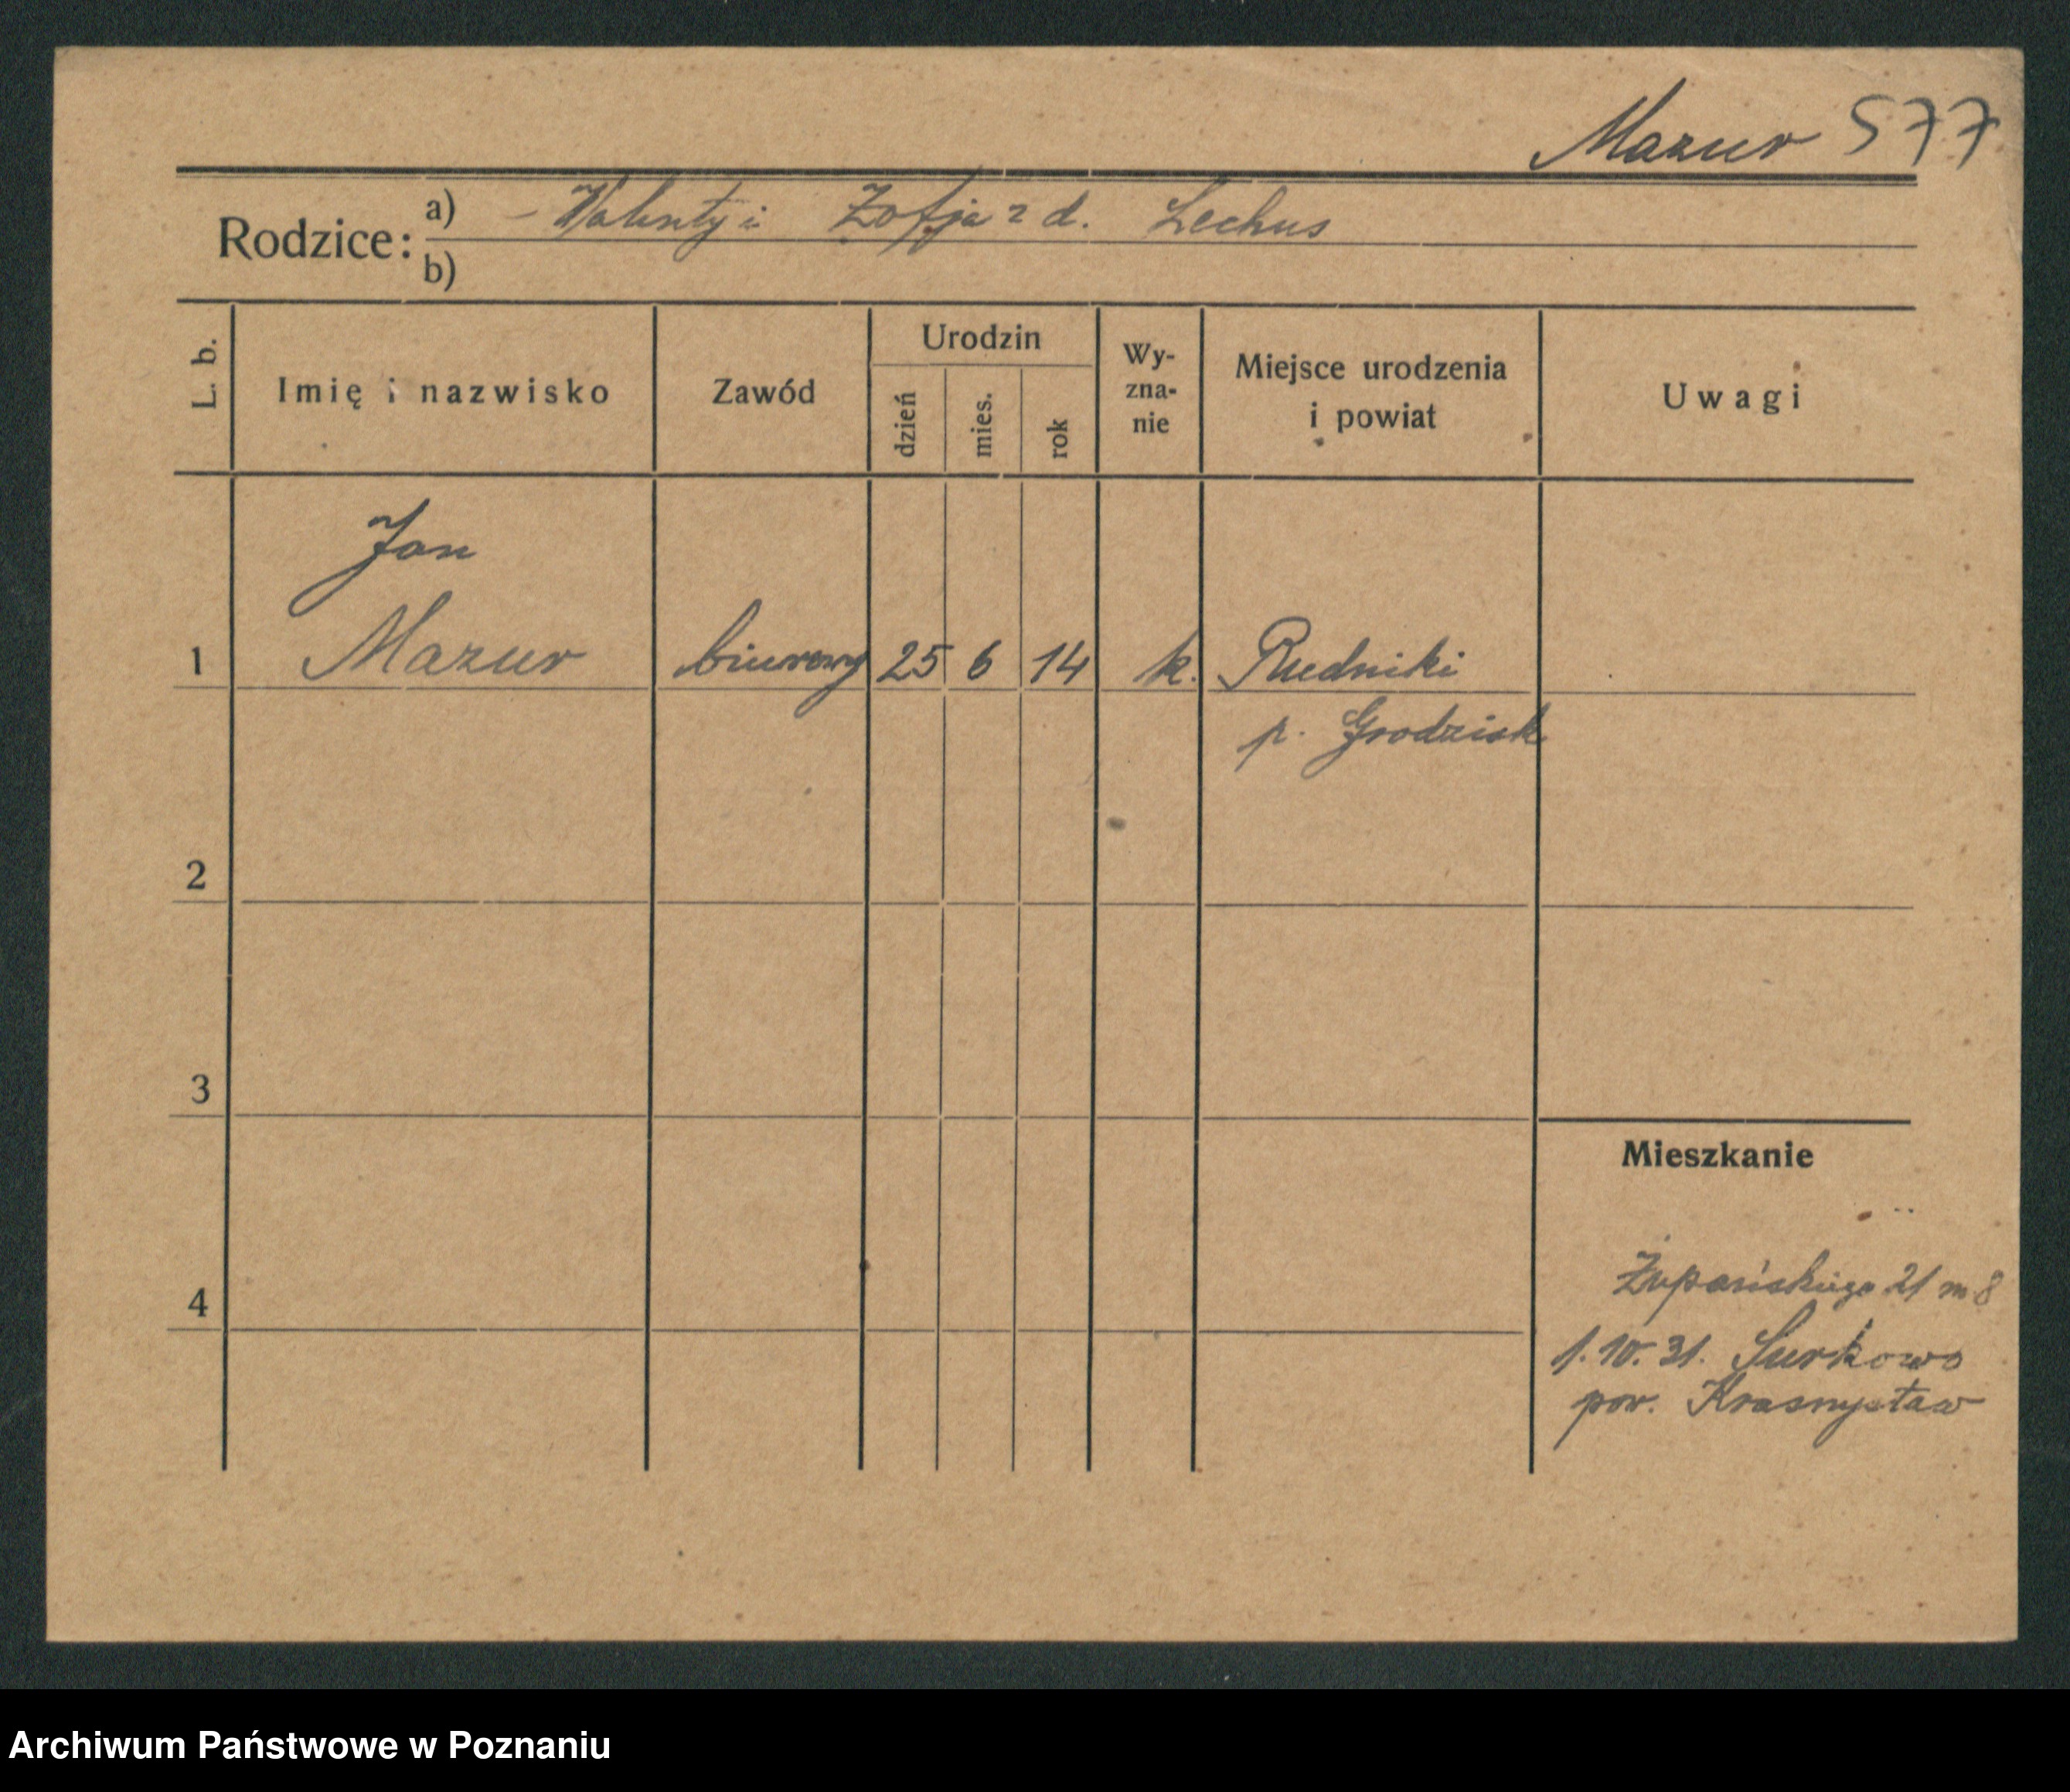 Mazur 577
Rodzice:
a) – Walenty i Zofja z d. Lechus
b)
L. b.
Imię i nazwisko
Zawód
Urodzin
dzień
mies.
rok
Wy-
zna-
nie
Miejsce urodzenia
i powiat
Uwagi
Jan
1 Mazur biurowy 25 6 14 k. Rudniki
p. Grodzisk
2
3
Mieszkanie
Żupańskiego 21 m 8
4
1.10.31. Surkowo
pow. Krasnystaw
Archiwum Państwowe w Poznaniu